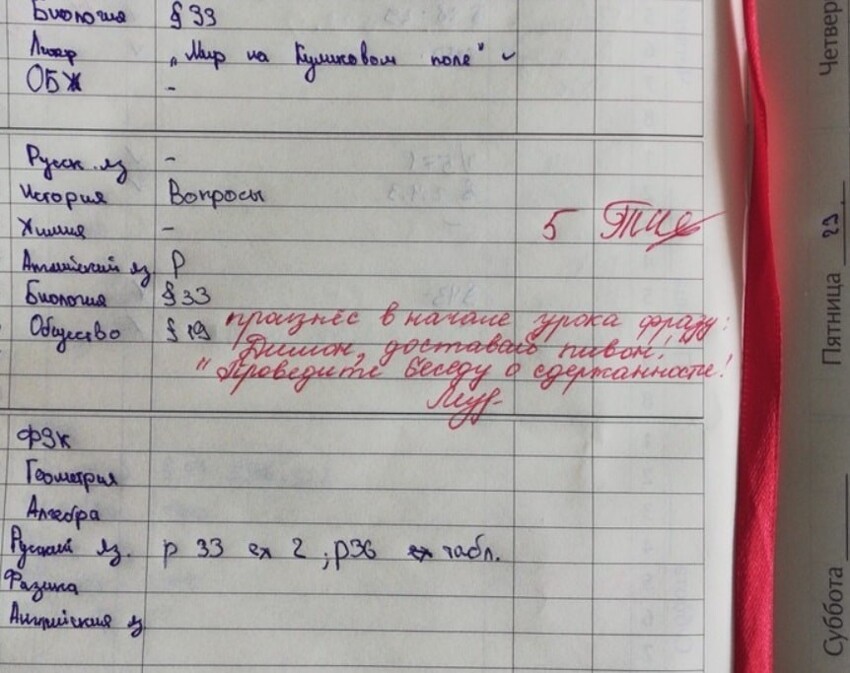 Биология § 33
Литер „Мир на Куликовом поле"
ОБЖ -
Русск. яз -
История Вопросы
Химия -
5
Английский яз P
Биология § 33
Общество § 19
произнёс в начале урока фразу:
"Димон, доставай пивон!
Проведите беседу о сдержанности!
ФЗК
Геометрия
Алгебра
Русский яз. p 33 ex 2 ; p36 табл.
Физика
Английския яз
Четвер
Пятница 29
Суббота